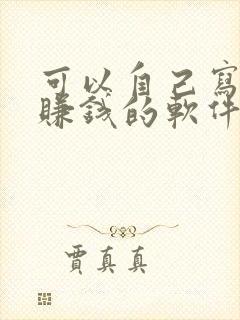 可以自己寫
賺錢的軟件
賈真真